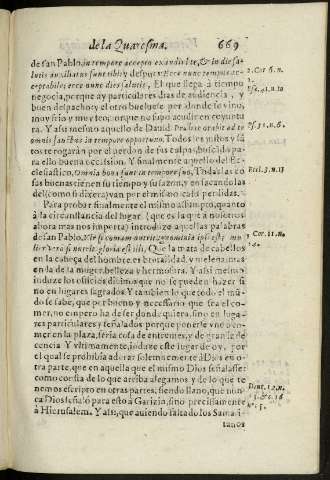 de la Quaresma. 669
de san Pablo, in tempore accepto exaudivi te, & in die sa-
lutis auxiliatus sum tibi: y despues: Ecce nunc tempus ac-
ceptabile: ecce nunc dies salutis. El que llega a tiempo
negocia, porque ay particulares dias de audiencia, y
buen despacho: y otro buelve se por donde se vino,
muy frio y muy seco, porque no supo acudir en coyuntu
ra. Y assi mesmo aquello de David: Pro hac orabit ad te
omnis sanctus in tempore opportuno. Todos tus justos y sã
tos te rogarán por el perdon de sus culpas, buscãdo pa-
ra ello buena occasion. Y finalmente aquello del Ec-
clesiastico, Omnia bona sunt in tempore suo, Todas las co
sas buenas tienen su tiempo y su sazon, y en sacandolas
del (como si dixera) van por el mismo caso perdidas.
Para probar finalmente el mismo assumpto, quanto
à la circunstancia del lugar (que es la que a nosotros
ahora mas nos importa) introduze aquellas palabras
de san Pablo,
ler vero si nutriat gloria est illi, Que la trata de cabellos
en la cabeça del hombre es brutalidad, y melena, mas
en la de la muger, belleza y hermosura. Y assi mesmo
induze los officios divinos que no se pueden hazer si
no en lugares sagrados. Y tambien lo que todo el mũ-
do se sabe, que por bueno y necessario que sea el co-
mer, no empero ha de ser donde quiera, sino en luga-
res particulares y señalados porque ponerse vno a co-
mer en la plaça, seria cosa de entremes, y de grande in-
decencia. Y vltimamente, induze este lugar de oy, por
el qual se prohibia adorar solemnemente à Dios en o-
tra parte, que en aquella que el mismo Dios señalasse:
como consta de lo que arriba alegamos y de lo que te
nemos escripto en otras partes, siendo llano, que nun-
ca Dios señaló para esto à Garizin, sino precissamente
à Hierusalem. Y assi, que auiendo faltado los Samari-
tanos
2. Cor 6. n.
2.
Esa. 41. n. 10
Ps. 31. n. 6.
Eccl. 3. n. 11
1. Cor. 11. n.
14.
Deut. 12. n.